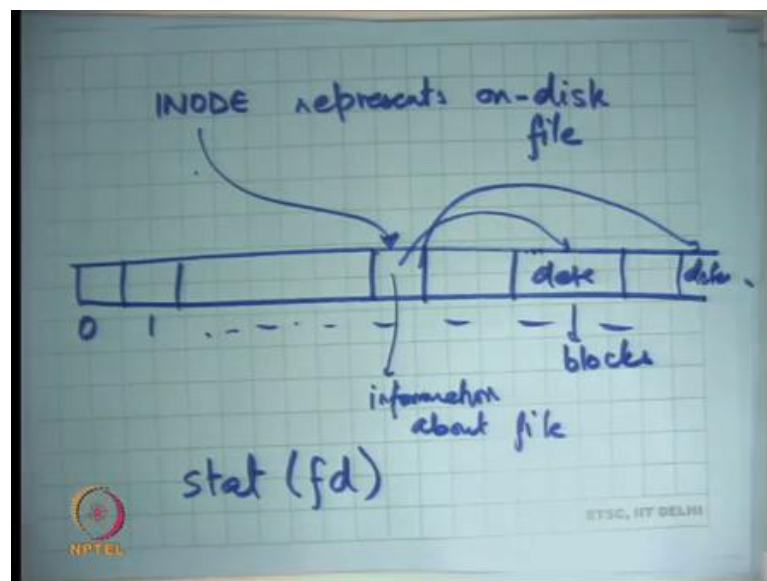 INODE represents on-disk
file
data
data
0 1
blocks
information
about file
stat (fd)
NPTEL
ETSC, IIT DELHI